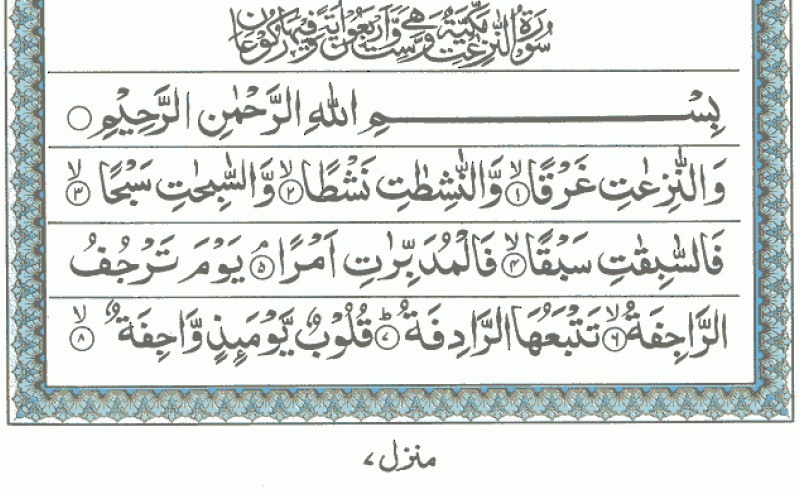 سُوْرَةُ النّٰزِعٰتِ مَكِّيَّةٌ وَّهِيَ سِتٌّ وَّاَرْبَعُوْنَ اٰيَةً وَّفِيْهَا رُكُوْعَانِ
بِسْـــــــــمِ اللهِ الرَّحْمٰنِ الرَّحِيْمِ ○
وَالنّٰزِعٰتِ غَرْقًا ۙ﴿۱﴾ وَّالنّٰشِطٰتِ نَشْطًا ۙ﴿۲﴾ وَّالسّٰبِحٰتِ سَبْحًا ۙ﴿۳﴾
فَالسّٰبِقٰتِ سَبْقًا ۙ﴿۴﴾ فَالْمُدَبِّرٰتِ اَمْرًا ۘ﴿۵﴾ يَوْمَ تَرْجُفُ
الرَّاجِفَةُ ۙ﴿۶﴾ تَتْبَعُهَا الرَّادِفَةُ ؕ﴿۷﴾ قُلُوْبٌ يَّوْمَئِذٍ وَّاجِفَةٌ ۙ﴿۸﴾
منزل ۷